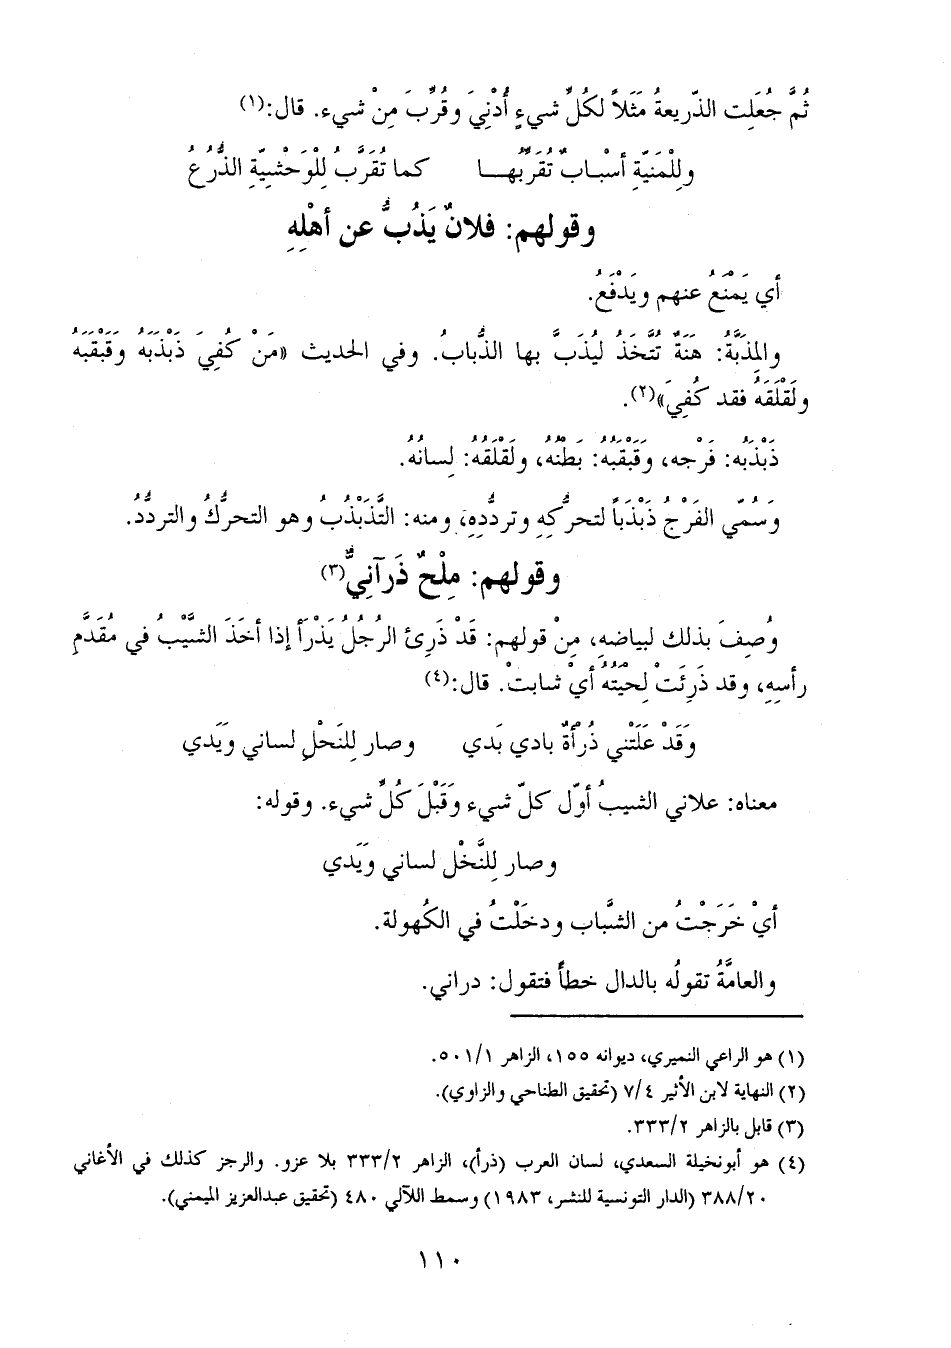 ثُمَّ جُعلَت الذّريعةُ مَثَلاً لكُلِّ شيءٍ أُدْنِيَ وقُرِّبَ مِنْ شيء. قال:(١)
وللْمَنيّةِ أسْبابٌ تُقَرِّبُهــا كما تُقَرَّبُ لِلْوَحْشيّةِ الذُّرُعُ
وقولهم: فلانٌ يَذُبُّ عن أهْلِهِ
أي يَمْنَعُ عنهم ويَدْفَعُ.
والمِذَبَّةُ: هَنَةٌ تُتَّخَذُ لِيُذَبَّ بها الذُّبابُ. وفي الحديث «مَن كُفِيَ ذَبْذَبَه وقَبْقَبَهُ
ولَقْلَقَهُ فقد كُفِيَ»(٢).
ذَبْذَبُه: فَرْجه، وقَبْقَبُهُ: بَطْنُهُ، ولَقْلَقُهُ: لِسانُهُ.
وَسُمّي الفَرْجُ ذَبْذَباً لتحرُّكِهِ وتردُّدِهِ، ومنه: التَّذَبْذُبُ وهو التحرُّكُ والتردُّدُ.
وقولهم: مِلْحٌ ذَرآنِيٌّ(٣)
وُصِفَ بذلك لبياضهِ، مِنْ قولهم: قَدْ ذَرِئَ الرجُلُ يَذْرَأ إذا أخَذَ الشَّيْبُ في مُقَدَّمِ
رأسِهِ، وقد ذَرِئَتْ لِحْيَتُهُ أيْ شابتْ. قال:(٤)
وَقَدْ عَلَتْني ذُرْأةٌ بادي بَدي وصار للنَحْلِ لساني ويَدي
معناه: علاني الشيبُ أوّل كلّ شيء وَقَبْلَ كُلِّ شيء. وقوله:
وصار لِلنَّحْل لساني ويَدي
أيْ خَرَجْتُ من الشَّباب ودخَلْتُ في الكُهولة.
والعامَّةُ تقولُه بالدال خطأً فتقول: دراني.
(١) هو الراعي النميري، ديوانه ١٥٥، الزاهر ٥٠١/١.
(٢) النهاية لابن الأثير ٧/٤ (تحقيق الطناحي والزاوي).
(٣) قابل بالزاهر ٣٣٣/٢.
(٤) هو أبونخيلة السعدي، لسان العرب (ذرأ)، الزاهر ٣٣٣/٢ بلا عزو. والرجز كذلك في الأغاني
٣٨٨/٢٠ (الدار التونسية للنشر، ١٩٨٣) وسمط اللآلي ٤٨٠ (تحقيق عبدالعزيز الميمني).
١١٠